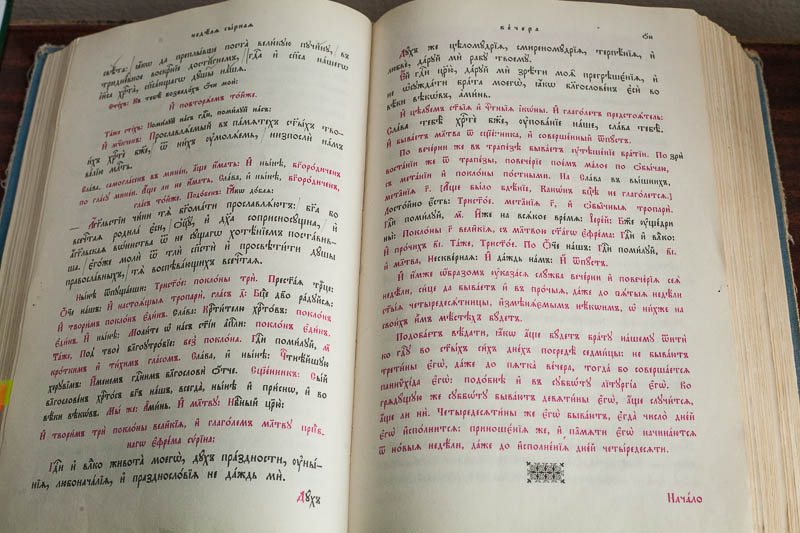 недѣ́лѧ сы́рнаѧ
свѣ́та: ꙗ҆́кѡ да преплы́вше поста̀ вели́кꙋю пꙋчи́нꙋ, въ
триднє́вное воскрⷭ҇нїе дости́гнемъ, гдⷭ҇а и҆ сп҃са на́шегѡ
і҆и҃са хрⷭ҇та̀, сп҃са́ющагѡ дꙋ́шы на́шѧ.
Сті́хъ: Къ тебѣ̀ возведо́хъ ѻ҆́чи моѝ:
И҆ повторѧ́емъ то́йже.
Та́же сті́хъ: Поми́лꙋй на́съ гдⷭ҇и, поми́лꙋй на́съ:
И҆ мч҃нченъ: Прославлѧ́емый въ па́мѧтехъ ст҃ы́хъ тво-
и́хъ хрⷭ҇тѐ бж҃е, ѿ ни́хъ ᲂу҆молѧ́емь, низпослѝ на́мъ
ве́лїю млⷭ҇ть.
Сла́ва, самогла́сенъ въ мине́и, а҆́ще и҆́мать: И҆ ны́нѣ, бг҃оро́диченъ,
по гла́сꙋ мине́и. А҆́ще ли не и҆́мать, Сла́ва, и҆ ны́нѣ, бг҃оро́диченъ,
гла́съ то́йже. Подо́бенъ: Ꙗ҆́кѡ до́блѧ:
А҆́гг҃льстїи чи́ни тѧ̀ бг҃ома́ти прославлѧ́ютъ: бг҃а бо
всечⷭ҇таѧ родила̀ є҆сѝ, ѻ҆ц҃ꙋ̀, и҆ дх҃ꙋ соприсносꙋ́щна, и҆
а҆́гг҃льскаѧ во́инства ѿ не сꙋ́щагѡ хотѣ́нїемъ поста́вив-
ша. є҆го́же молѝ ѿ тлѝ спⷭ҇тѝ и҆ просвѣти́ти дꙋ́шы
правосла́вныхъ, тѧ̀ воспѣва́ющихъ всечⷭ҇таѧ.
Ны́нѣ ѿпꙋща́еши: Трист҃о́е: покло́ны трѝ. Прест҃а́ѧ трⷪ҇це:
Ѻ҆́ч҃е на́шъ: И҆ настоѧ́щыѧ тропарѝ, гла́съ д҃: Бц҃е дв҃о ра́дꙋйсѧ:
И҆ твори́мъ покло́нъ є҆ди́нъ. Сла́ва: Крⷭ҇ти́телю хрⷭ҇то́въ: покло́нъ
є҆ди́нъ. И҆ ны́нѣ: Моли́те ѡ҆ на́съ ст҃і́и а҆пⷭ҇ли: покло́нъ є҆ди́нъ.
Та́же, Под̾ твоѐ бл҃гоꙋтро́бїе: без̾ покло́на. Гдⷭ҇и поми́лꙋй, м҃
кро́ткимъ и҆ ти́химъ гла́сомъ. Сла́ва, и҆ ны́нѣ: Чⷭ҇тнѣ́йшꙋю
херꙋві́мъ: И҆́менемъ гдⷭ҇нимъ бл҃гословѝ ѻ҆́тче. Сщ҃е́нникъ: Сы́й
бл҃гослове́нъ хрⷭ҇то́съ бг҃ъ на́шъ, всегда̀, ны́нѣ и҆ при́снѡ, и҆ во
вѣ́ки вѣкѡ́въ. Мы́ же: А҆ми́нь. И҆ мл҃твꙋ: Нбⷭ҇ный цр҃ю̀:
И҆ твори́мъ трѝ покло́ны вели̑кїѧ, и҆ глаго́лемъ мл҃твꙋ прпⷣб-
нагѡ є҆фре́ма сѵ́рїна:
Гдⷭ҇и и҆ влⷣко живота̀ моегѡ̀, дꙋ́хъ пра́здности, ᲂу҆ны́-
нїѧ, любонача́лїѧ, и҆ праздносло́вїѧ не да́ждь мѝ.
Дꙋ́хъ
ве́чера
Дꙋ́хъ же цѣломꙋ́дрїѧ, смиренномꙋ́дрїѧ, терпѣ́нїѧ, и҆
любвѐ, да́рꙋй мѝ рабꙋ̀ твоемꙋ̀.
Є҆́й гдⷭ҇и цр҃ю̀, да́рꙋй мѝ зрѣ́ти моѧ҄ прегрѣшє́нїѧ, и҆
не ѡ҆сꙋжда́ти бра́та моегѡ̀, ꙗ҆́кѡ бл҃гослове́нъ є҆сѝ во
вѣ́ки вѣкѡ́въ, а҆ми́нь.
И҆ цѣлꙋ́емъ ст҃ы̑ѧ и҆ чⷭ҇тны̑ѧ і҆кѡ́ны. И҆ глаго́летъ предстоѧ́тель:
Сла́ва тебѣ̀ хрⷭ҇тѐ бж҃е, ᲂу҆пова́нїе на́ше, сла́ва тебѣ̀.
И҆ быва́етъ мл҃тва ѿ сщ҃е́нника, и҆ соверше́нный ѿпꙋ́стъ.
По вече́рни же въ трапе́зѣ быва́етъ ᲂу҆тѣше́нїе бра́тїи. По
воста́нїи же ѿ трапе́зы, повече́рїе пое́мъ ма́лое по ѻ҆бы́чаю,
съ мета̑нїи и҆ покло́ны поѧ́сными. На Сла́ва въ вы́шнихъ,
мета̑нїѧ г҃. А҆́ще бы́ло бдѣ́нїе, Канѡ́нъ бц҃ѣ не глаго́летсѧ:
Досто́йно є҆́сть: Трист҃о́е. Мета̑нїѧ г҃, и҆ ѻ҆бы̑чныѧ тропарѝ.
Гдⷭ҇и поми́лꙋй, м҃. И҆́же на всѧ́кое вре́мѧ: І҆ере́й: Бж҃е ᲂу҆ще́дри
ны̀: Покло́ны г҃ вели̑кїѧ, съ мл҃твою ст҃а́гѡ є҆фре́ма: Гдⷭ҇и и҆ влⷣко:
И҆ про́чихъ в҃і. Та́же, Трист҃о́е. По Ѻ҆́ч҃е на́шъ: Гдⷭ҇и поми́лꙋй, в҃і.
и҆ мл҃тва, Нескве́рнаѧ: И҆ Да́ждь на́мъ: И҆ ѿпꙋ́стъ.
И҆ и҆́мже ѡ҆́бразомъ ᲂу҆каза́сѧ слꙋ́жба вече́рни и҆ повече́рїѧ сеѧ̀
недѣ́ли, си́це да быва́етъ и҆ въ про́чыѧ, да́же до цвѣ́тныѧ недѣ́ли
ст҃ы́ѧ четыредесѧ́тницы, и҆змѣнѧ́ємымъ нѣ́кїимъ, ѡ҆ ни́хже на
свои́хъ и҆̀мъ мѣ́стѣхъ бꙋ́детъ.
Подоба́етъ вѣ́дати, ꙗ҆́кѡ а҆́ще бꙋ́детъ бра́тꙋ на́шемꙋ ѿитѝ
ко гдⷭ҇ꙋ во ст҃ы́хъ си́хъ дне́хъ посредѣ̀ седми́цы: не быва́ютъ
трети̑ны є҆гѡ̀, да́же до пѧтка̀ ве́чера, тогда́ бо соверша́етсѧ
панихі́да є҆гѡ̀: подо́бнѣ и҆ въ сꙋббѡ́тꙋ лїтꙋргі́а є҆гѡ̀. Во
грѧдꙋ́щꙋю же сꙋббѡ́тꙋ быва́ютъ девѧти̑ны є҆гѡ̀, а҆́ще слꙋчи́тсѧ,
а҆́ще ли нѝ. Четыредесѧти̑ны же є҆гѡ̀ быва́ютъ, є҆гда̀ число̀ дні́й
є҆гѡ̀ и҆спо́лнитсѧ: приношє́нїѧ же, и҆ па́мѧти є҆гѡ̀ начина́ютсѧ
ѿ но́выѧ недѣ́ли, да́же до и҆сполне́нїѧ дні́й четы́редесѧти.
Нача́ло